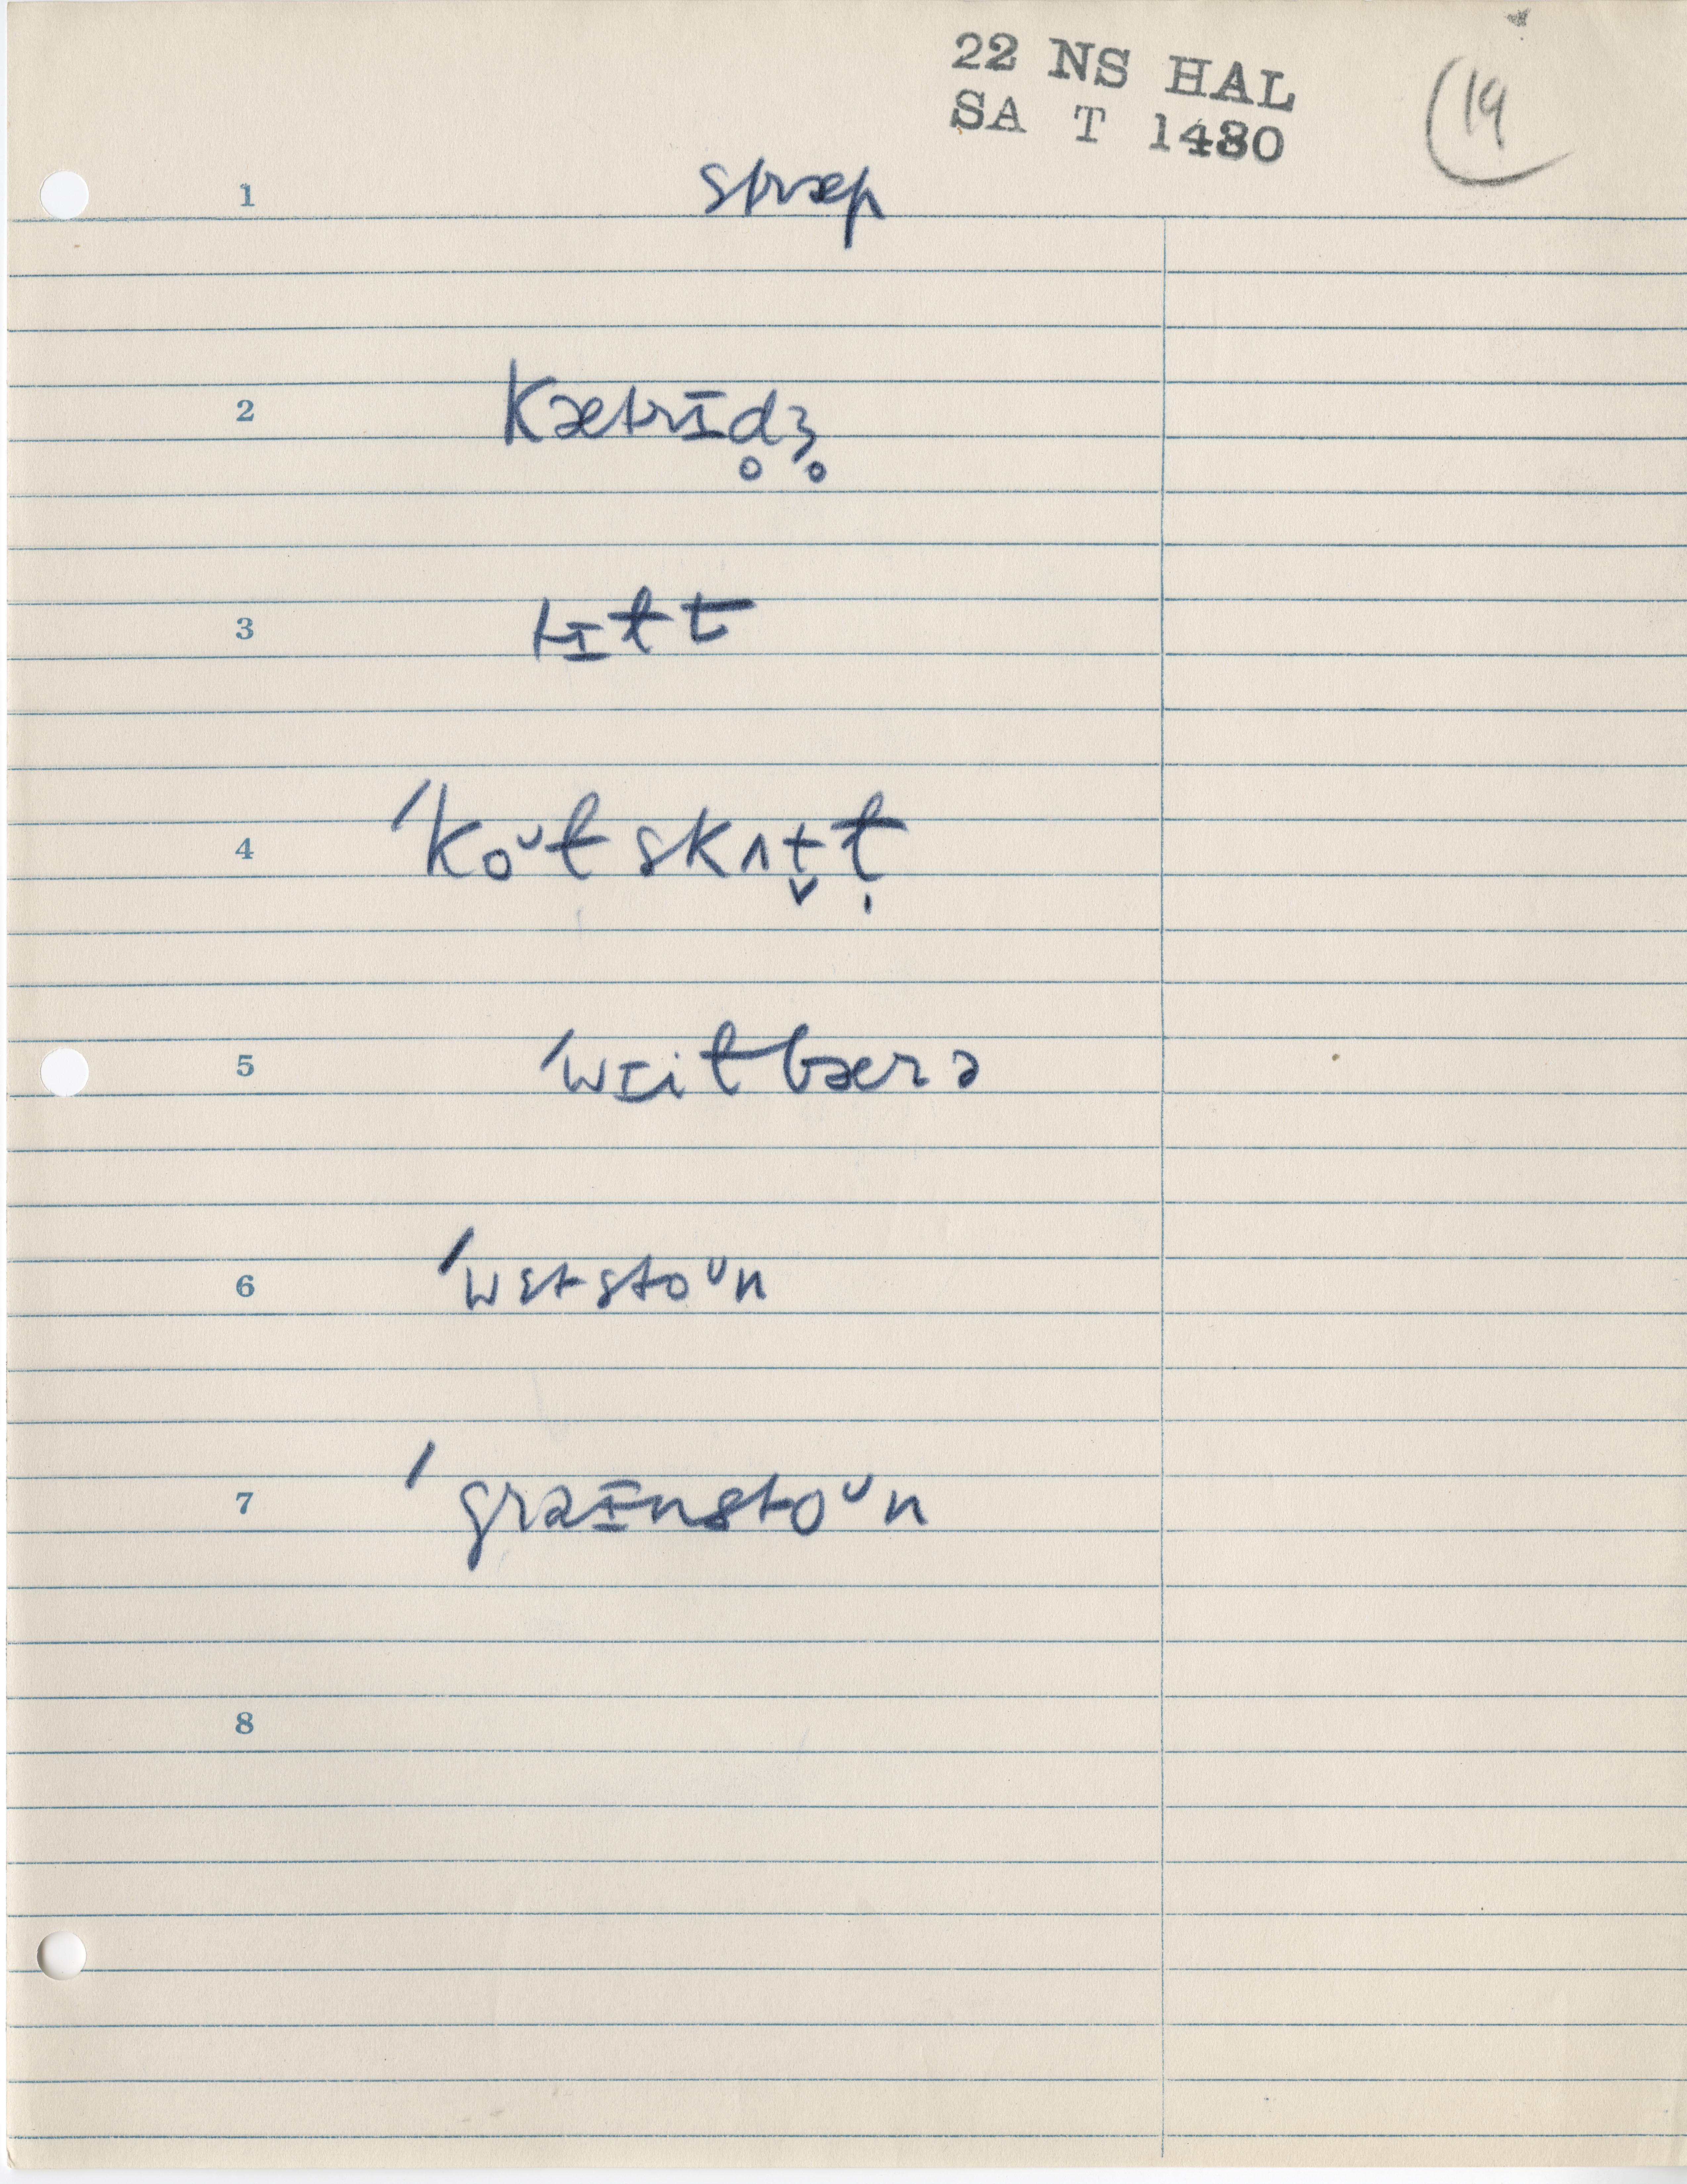 22 NS HAL
SA T 1480
19
1 stræp
2 kætrɪd̥ʒ̥
4 ˊkoᶷɫskʌt̬ɫ̣
5 ˊwɪitbærə
6 ˊwɛtstoᶷn
7 ˊgraɪnstoᶷn
8